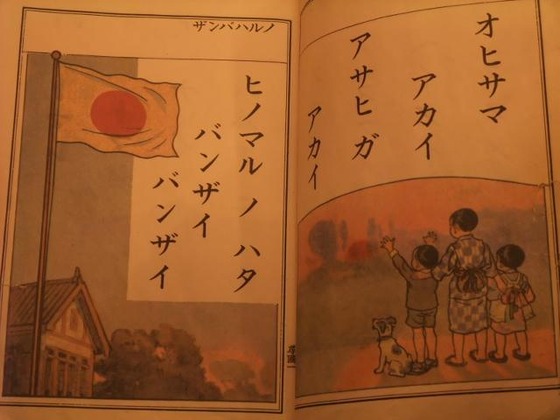 オヒサマ
アカイ
アサヒ ガ
アカイ
ノルハバンザ
ヒノマル ノ ハタ
バンザイ
バンザイ